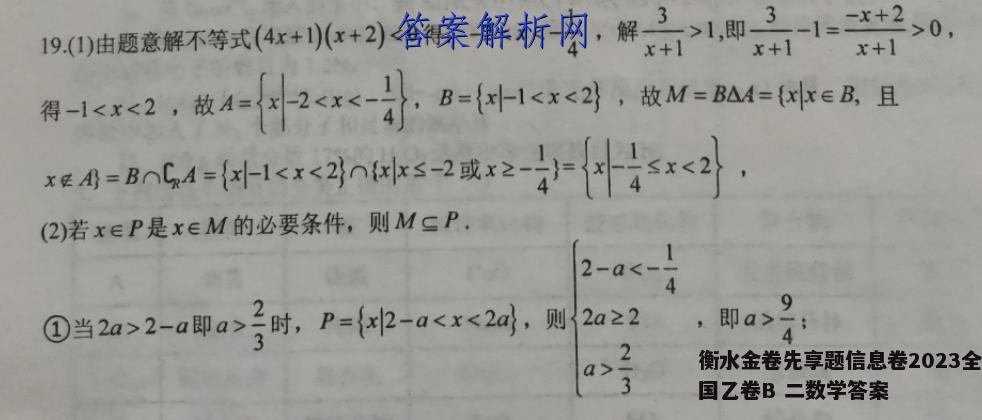 19.(1)由题意解不等式(4x+1)(x+2)<
答案解析网
4, 解 3/(x+1) >1,即 3/(x+1) -1= (-x+2)/(x+1) >0,
得-1<x<2 , 故A={x|-2<x<-1/4}, B={x|-1<x<2} , 故M=BΔA={x|x∈B, 且
x∉A}=B∩∁RA={x|-1<x<2}∩{x|x≤-2或x≥-1/4}={x|-1/4≤x<2} ,
(2)若x∈P是x∈M的必要条件, 则M⊆P.
①当2a>2-a即a>2/3时, P={x|2-a<x<2a}, 则{2-a<-1/4
2a≥2
a>2/3
, 即a>9/4;
衡水金卷先享题信息卷2023全
国乙卷B 二数学答案